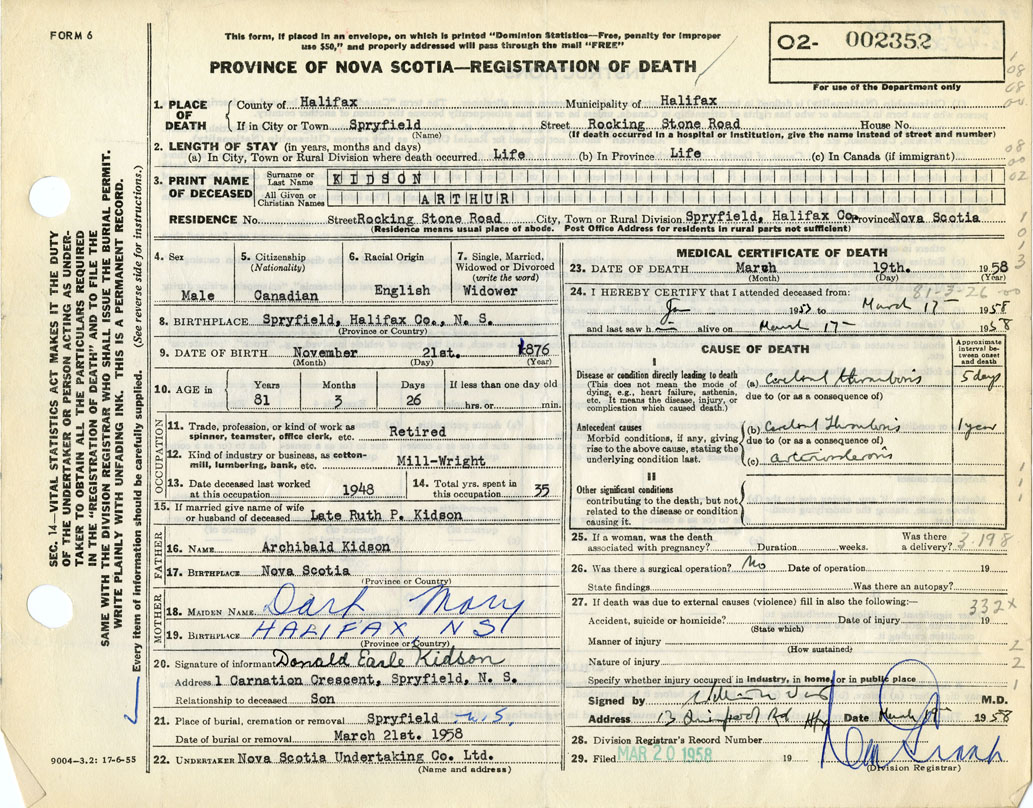 FORM 6
This form, if placed in an envelope, on which is printed "Dominion Statistics—Free, penalty for improper
use $50," and properly addressed will pass through the mail "FREE"
02- 002352
For use of the Department only
PROVINCE OF NOVA SCOTIA—REGISTRATION OF DEATH
1. PLACE OF DEATH
County of Halifax Municipality of Halifax
If in City or Town Spryfield Street Rocking Stone Road House No.
(Name) (If death occurred in a hospital or institution, give the name instead of street and number)
2. LENGTH OF STAY (in years, months and days)
(a) In City, Town or Rural Division where death occurred Life (b) In Province Life (c) In Canada (if immigrant)
3. PRINT NAME OF DECEASED
Surname or Last Name KIDSON
All Given or Christian Names ARTHUR
RESIDENCE No. Street Rocking Stone Road City, Town or Rural Division Spryfield, Halifax Co. Province Nova Scotia
(Residence means usual place of abode. Post Office Address for residents in rural parts not sufficient)
4. Sex
Male
5. Citizenship
(Nationality)
Canadian
6. Racial Origin
English
7. Single, Married,
Widowed or Divorced
(write the word)
Widower
8. BIRTHPLACE Spryfield, Halifax Co., N. S.
(Province or Country)
9. DATE OF BIRTH November 21st. 1876
(Month) (Day) (Year)
10. AGE in
Years Months Days If less than one day old
81 3 26 hrs. or min.
OCCUPATION
11. Trade, profession, or kind of work as
spinner, teamster, office clerk, etc. Retired
12. Kind of industry or business, as cotton-
mill, lumbering, bank, etc. Mill-Wright
13. Date deceased last worked
at this occupation 1948
14. Total yrs. spent in
this occupation 35
15. If married give name of wife
or husband of deceased Late Ruth P. Kidson
FATHER
16. NAME Archibald Kidson
17. BIRTHPLACE Nova Scotia
(Province or Country)
MOTHER
18. MAIDEN NAME Mary
19. BIRTHPLACE HALIFAX, NS
(Province or Country)
20. Signature of informant Donald Earle Kidson
Address 1 Carnation Crescent, Spryfield, N. S.
Relationship to deceased Son
21. Place of burial, cremation or removal Spryfield N.S.
Date of burial or removal March 21st. 1958
22. UNDERTAKER Nova Scotia Undertaking Co. Ltd.
(Name and address)
9004—3.2: 17-6-55
MEDICAL CERTIFICATE OF DEATH
23. DATE OF DEATH March 19th. 1958
(Month) (Day) (Year)
81-3-26
24. I HEREBY CERTIFY that I attended deceased from:
Jan 1953 to March 17 1958
and last saw h alive on March 17 1958
CAUSE OF DEATH
Approximate
interval be-
tween onset
and death
I
Disease or condition directly leading to death
(This does not mean the mode of
dying, e.g., heart failure, asthenia,
etc. It means the disease, injury, or
complication which caused death.)
(a) thrombosis 5 days
due to (or as a consequence of)
Antecedent causes
Morbid conditions, if any, giving
rise to the above cause, stating the
underlying condition last.
(b) Thrombosis 1 year
due to (or as a consequence of)
(c) arteriosclerosis
II
Other significant conditions
contributing to the death, but not
related to the disease or condition
causing it.
25. If a woman, was the death
associated with pregnancy? Duration weeks. Was there
a delivery? 3-198
26. Was there a surgical operation? No Date of operation 19
State findings Was there an autopsy?
27. If death was due to external causes (violence) fill in also the following:—
332X
Accident, suicide or homicide? Date of injury 19
(State which)
Manner of injury
(How sustained)
Nature of injury
Specify whether injury occurred in industry, in home, or in public place
Signed by M.D.
Address 13 Rd Hfx Date March 1958
28. Division Registrar's Record Number
29. Filed MAR 20 1958 19
(Division Registrar)
SEC. 14—VITAL STATISTICS ACT MAKES IT THE DUTY
OF THE UNDERTAKER OR PERSON ACTING AS UNDER-
TAKER TO OBTAIN ALL THE PARTICULARS REQUIRED
IN THE "REGISTRATION OF DEATH" AND TO FILE THE
SAME WITH THE DIVISION REGISTRAR WHO SHALL ISSUE THE BURIAL PERMIT.
WRITE PLAINLY WITH UNFADING INK. THIS IS A PERMANENT RECORD.
Every item of information should be carefully supplied. (See reverse side for instructions.)